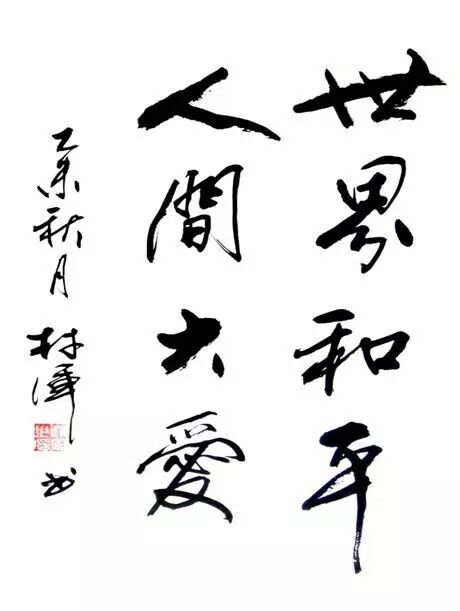 世界和平
人間大愛
乙未秋月
林潭书